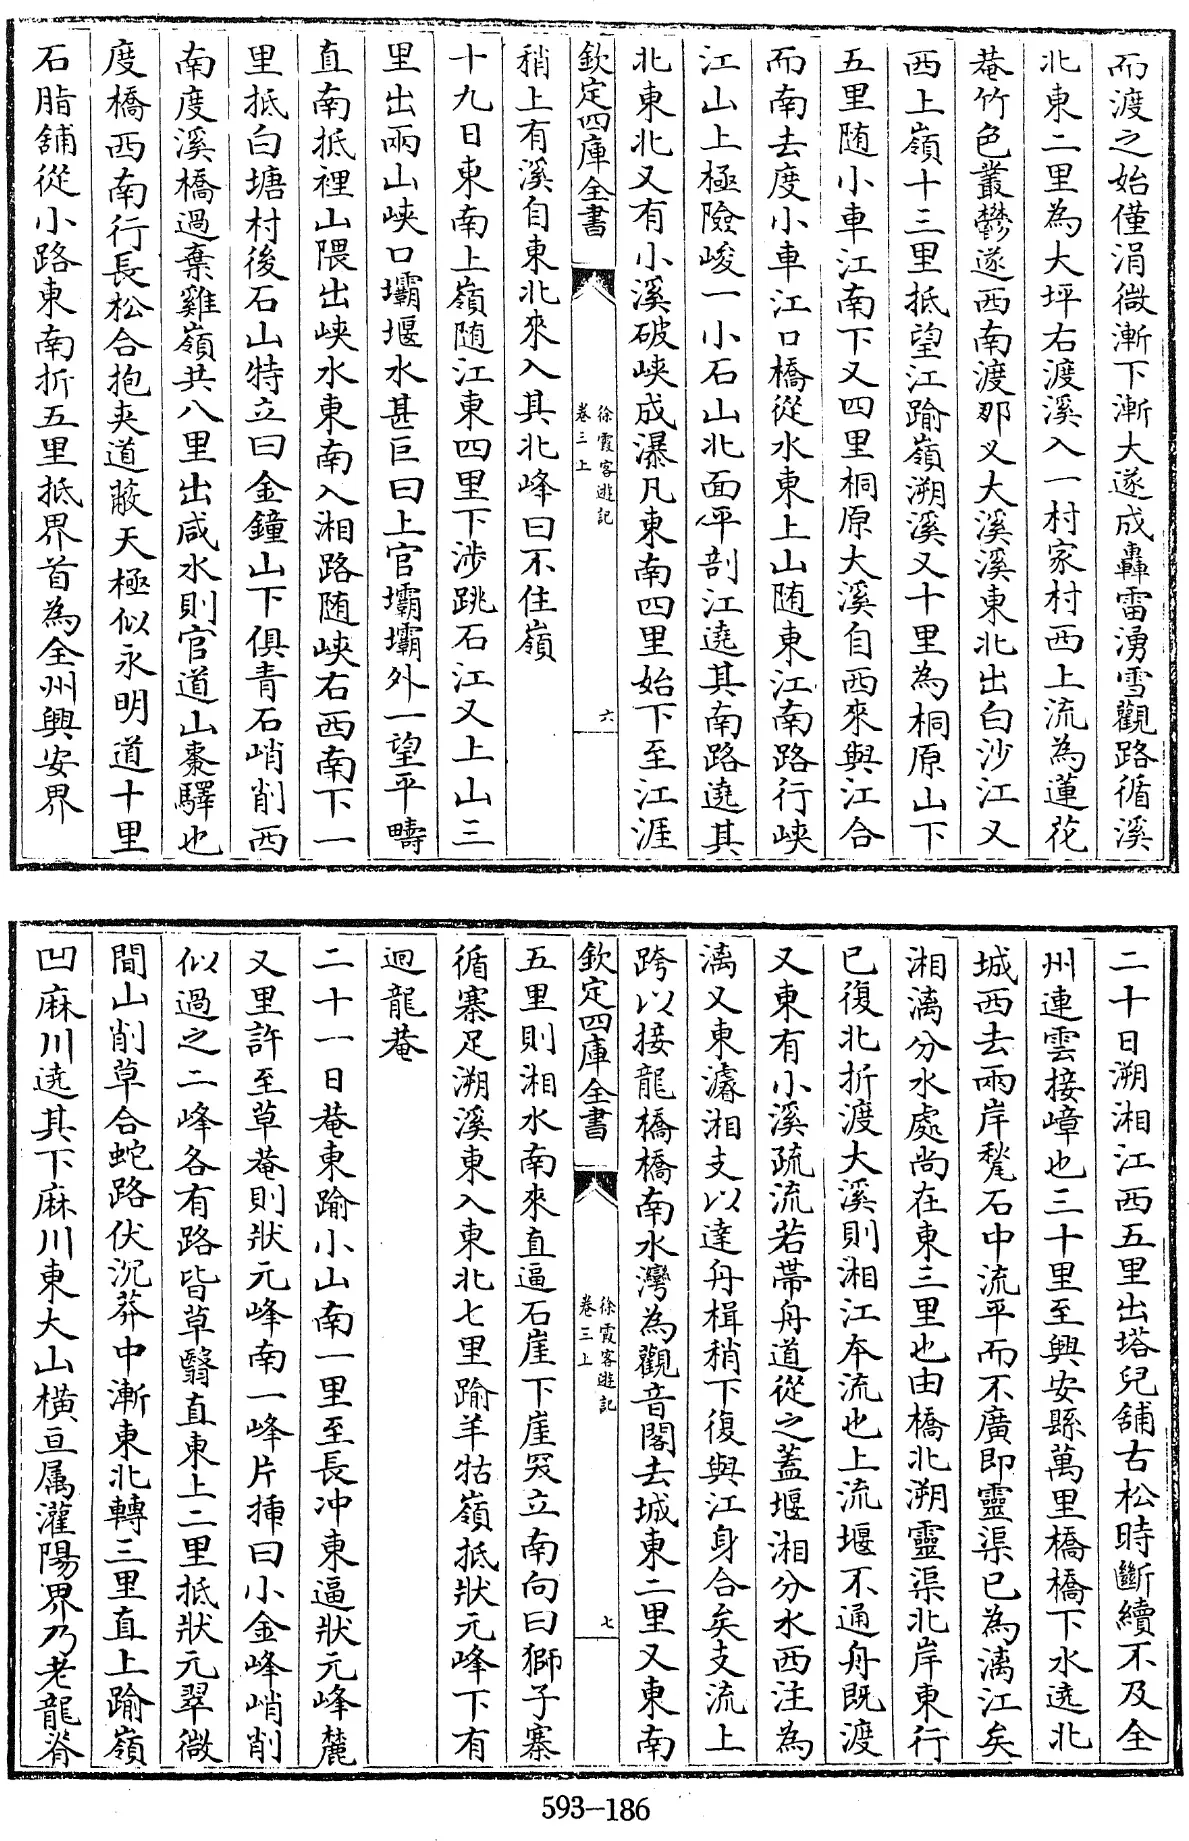 而渡之始僅涓微漸下漸大遂成轟雷湧雪觀路循溪
北東二里為大坪右渡溪入一村家村西上流為蓮花
菴竹色叢鬱遂西南渡那义大溪溪東北出白沙江又
西上嶺十三里抵望江踰嶺溯溪又十里為桐原山下
五里随小車江南下又四里桐原大溪自西來與江合
而南去度小車江口橋從水東上山随東江南路行峽
江山上極險峻一小石山北面平剖江遶其南路遶其
北東北又有小溪破峽成瀑凡東南四里始下至江涯
欽定四庫全書
徐霞客遊記
卷三上
六
稍上有溪自東北來入其北峰曰不住嶺
十九日東南上嶺随江東四里下涉跳石江又上山三
里出兩山峽口壩堰水甚巨曰上官壩壩外一望平疇
直南抵裡山隈出峽水東南入湘路随峽右西南下一
里抵白塘村後石山特立曰金鐘山下俱青石峭削西
南度溪橋過棄雞嶺共八里出咸水則官道山棗驛也
度橋西南行長松合抱夾道蔽天極似永明道十里
石脂舖從小路東南折五里抵界首為全州興安界
二十日溯湘江西五里出塔兒舖古松時斷續不及全
州連雲接嶂也三十里至興安縣萬里橋橋下水遶北
城西去兩岸甃石中流平而不廣即靈渠已為漓江矣
湘漓分水處尚在東三里也由橋北溯靈渠北岸東行
已復北折渡大溪則湘江本流也上流堰不通舟既渡
又東有小溪疏流若帶舟道從之蓋堰湘分水西注為
漓又東濬湘支以達舟楫稍下復與江身合矣支流上
跨以接龍橋橋南水灣為觀音閣去城東二里又東南
欽定四庫全書
徐霞客遊記
卷三上
七
五里則湘水南來直逼石崖下崖突立南向曰獅子寨
循寨足溯溪東入東北七里踰羊牯嶺抵狀元峰下有
迴龍菴
二十一日菴東踰小山南一里至長冲東逼狀元峰麓
又里許至草菴則狀元峰南一峰片揷曰小金峰峭削
似過之二峰各有路皆草翳直東上二里抵狀元翠微
間山削草合蛇路伏沉莽中漸東北轉三里直上踰嶺
凹麻川遶其下麻川東大山橫亘属灌陽界乃老龍脊
593-186